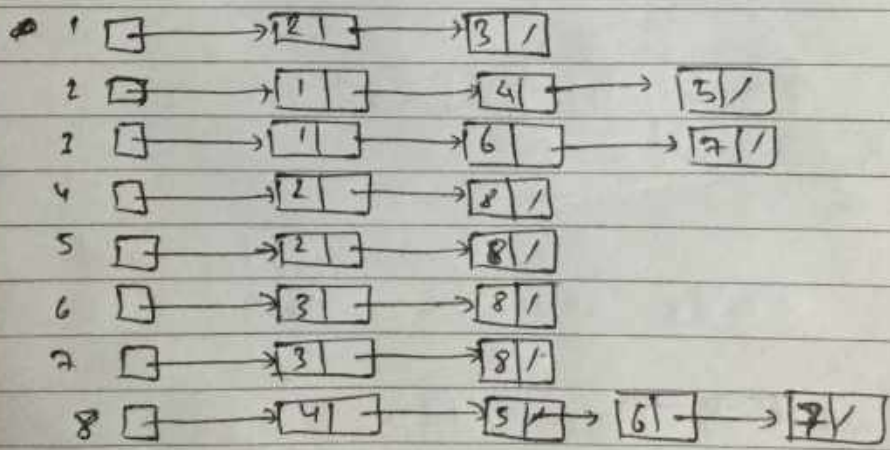 1 → 2 → 3 /
2 → 1 → 4 → 5 /
3 → 1 → 6 → 7 /
4 → 2 → 8 /
5 → 2 → 8 /
6 → 3 → 8 /
7 → 3 → 8 /
8 → 4 → 5 → 6 → 7 /